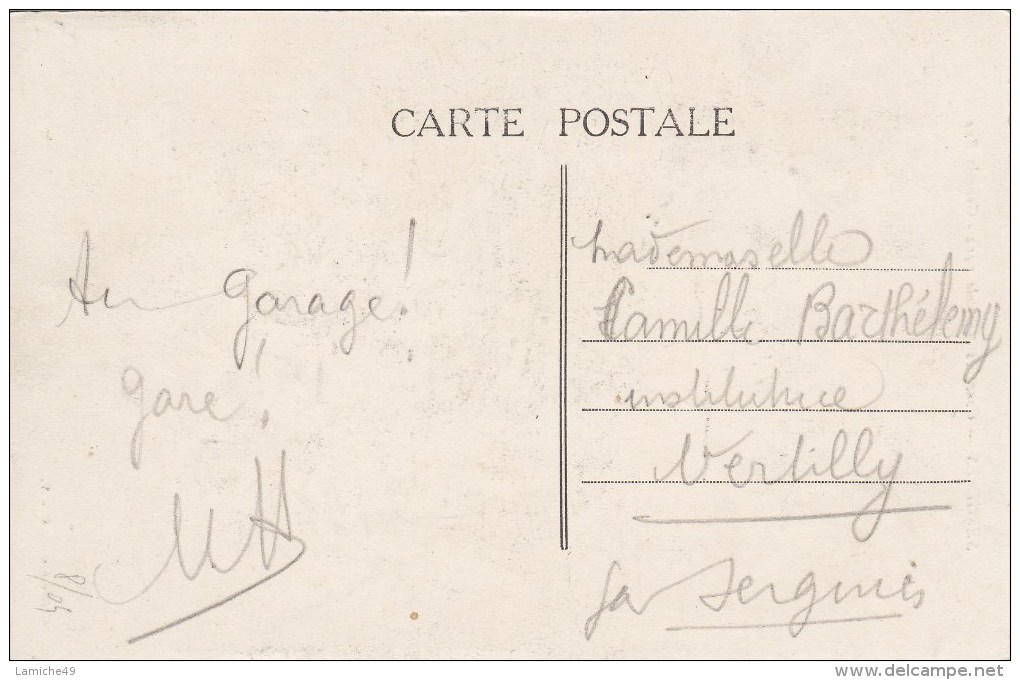 CARTE POSTALE
Au garage!
gare!
MH
8/04
Mademoiselle
Camille Barthélemy
institutrice
Vertilly
par Sergines
Lamiche49
www.delcampe.net